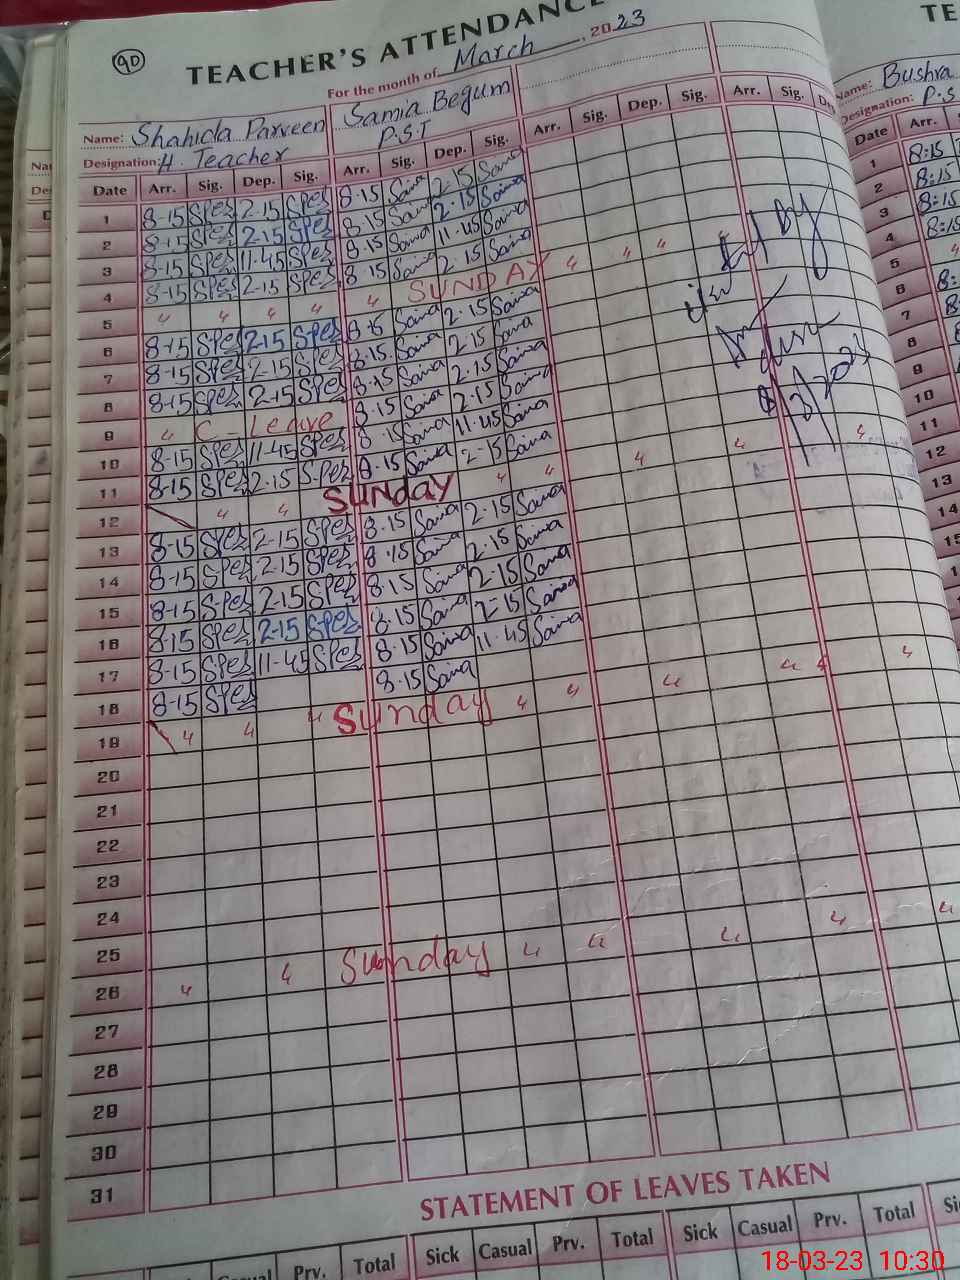 90
TEACHER'S ATTENDANCE
For the month of March, 2023
Name: Shahida Parveen Samia Begum
Designation: H. Teacher P.S.T
Date Arr. Sig. Dep. Sig. Arr. Sig. Dep. Sig. Arr. Sig. Dep. Sig. Arr. Sig.
1 8-15 Spes 2-15 Spes 8.15 Saima 2.15 Saima
2 8-15 Spes 2-15 Spes 8.15 Saima 2.15 Saima
3 8-15 Spes 11-45 Spes 8.15 Saima 11.45 Saima
4 8-15 Spes 2-15 Spes 8.15 Saima 2.15 Saima
5 " " " " " SUNDAY " " " "
6 8-15 Spes 2-15 Spes 8.15 Saima 2.15 Saima
7 8-15 Spes 2-15 Spes 8.15 Saima 2.15 Saima
8 8-15 Spes 2-15 Spes 8.15 Saima 2.15 Saima
9 " C - Leave 8.15 Saima 2.15 Saima
10 8-15 Spes 11-45 Spes 8.15 Saima 11.45 Saima
11 8-15 Spes 2-15 Spes 8.15 Saima 2-15 Saima
12 " " SUNday " " " " "
13 8-15 Spes 2-15 Spes 8.15 Saima 2.15 Saima
14 8-15 Spes 2-15 Spes 8.15 Saima 2.15 Saima
15 8-15 Spes 2-15 Spes 8.15 Saima 2-15 Saima
16 8-15 Spes 2-15 Spes 8.15 Saima 2-15 Saima
17 8-15 Spes 11-45 Spes 8.15 Saima 11.45 Saima
18 8-15 Spes 8.15 Saima
19 " " " Sunday " " " " " "
20
21
22
23
24
25
26 " " Sunday " " " " "
27
28
29
30
31
STATEMENT OF LEAVES TAKEN
Casual Prv. Total Sick Casual Prv. Total Sick Casual Prv. Total
TE
Name: Bushra
Designation: P.S
Date Arr.
1 8:15
2 8:15
3 8:15
4 8:15
5 "
6 8:
7 8:
8
9
10
11
12
13
14
15
18-03-23 10:30